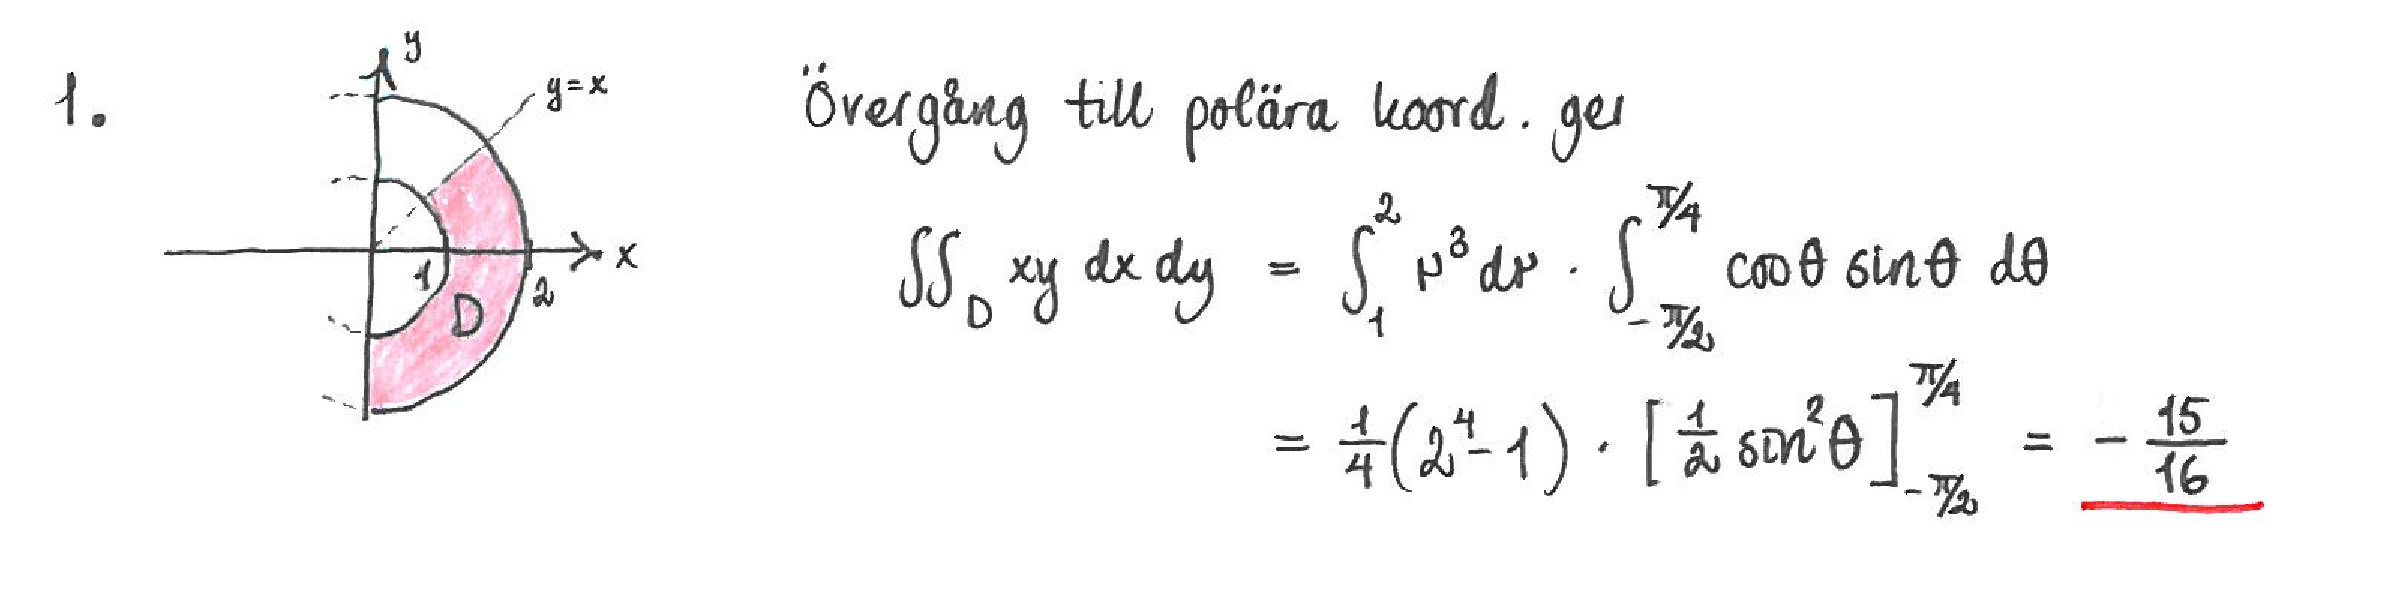 1.
y
y=x
x
1
2
D
Övergång till polära koord. ger
∫∫_D xy dx dy = ∫_1^2 r^3 dr · ∫_{-π/2}^{π/4} cos θ sin θ dθ
= 1/4 (2^4 - 1) · [1/2 sin^2 θ]_{-π/2}^{π/4} = - 15/16